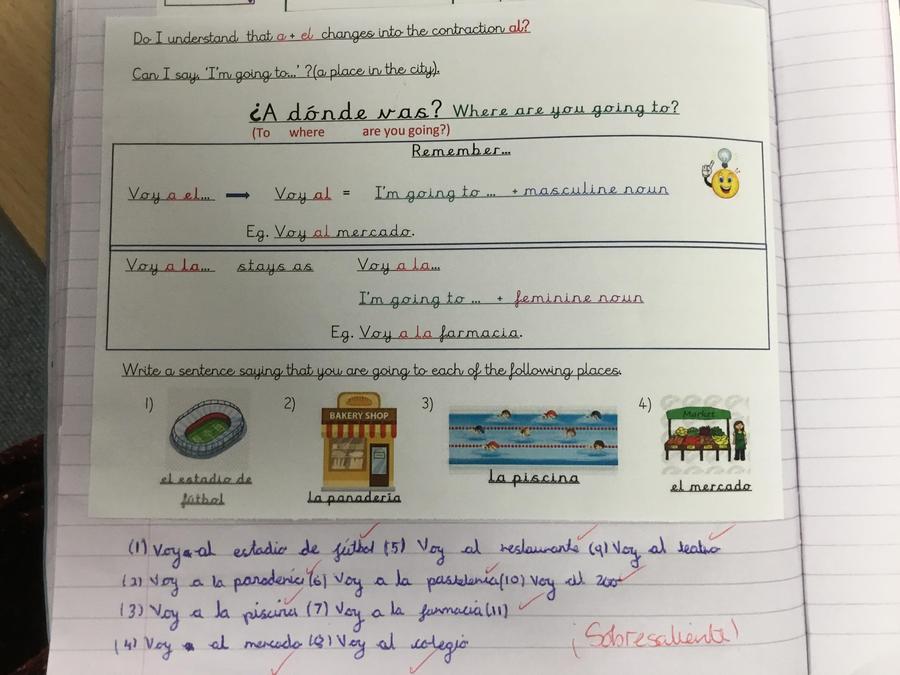 Do I understand that a + el changes into the contraction al?
Can I say, 'I'm going to...' ?(a place in the city).
¿A dónde vas? Where are you going to?
(To where are you going?)
Remember...
Voy a el... Voy al = I'm going to ... + masculine noun
Eg. Voy al mercado.
Voy a la... stays as Voy a la...
I'm going to ... + feminine noun
Eg. Voy a la farmacia.
Write a sentence saying that you are going to each of the following places.
1) 2) 3) 4)
BAKERY SHOP
Market
el estadio de fútbol
la panadería
la piscina
el mercado
(1) Voy al estadio de fútbol (5) Voy al restaurante (9) Voy al teatro
(2) Voy a la panadería (6) Voy a la pastelería (10) Voy al zoo
(3) Voy a la piscina (7) Voy a la farmacia (11)
(4) Voy al mercado (8) Voy al colegio
¡Sobresaliente!